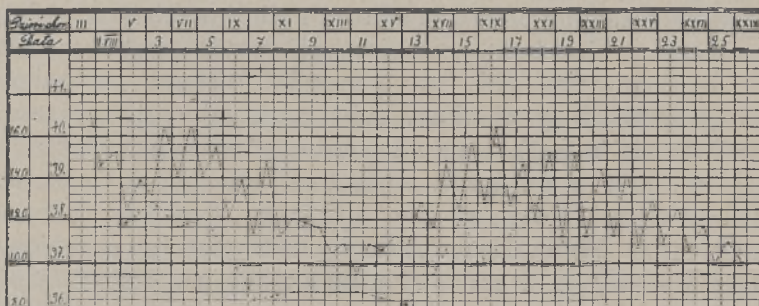 III V VII IX XI XIII XV XVII XIX XXI XXIII XXV XXVII XXIX
Data 1/VIII 3 5 7 9 11 13 15 17 19 21 23 25
41.
160 40.
140 39.
120 38.
100 37.
80 36.